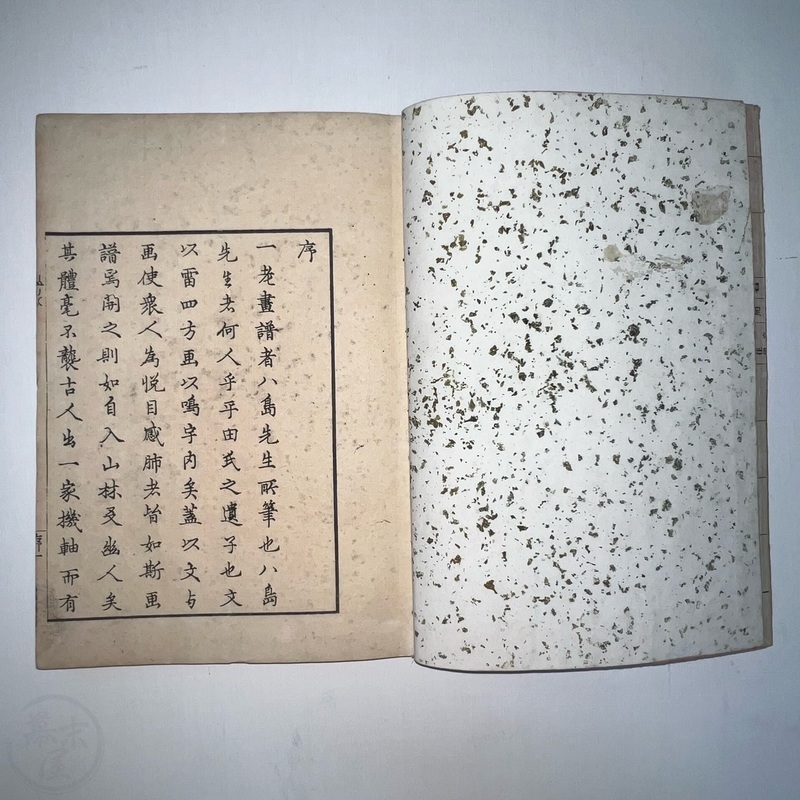 序
一老畫譜者八島先生所筆也八島
先生者何人乎平田氏之遺子也文
以雷四方画以鳴宇内矣蓋以文与
画使衆人為悦目感肺者皆如斯画
譜焉開之則如自入山林友幽人矣
其體毫不襲古人出一家機軸而有
序一
幕末屋